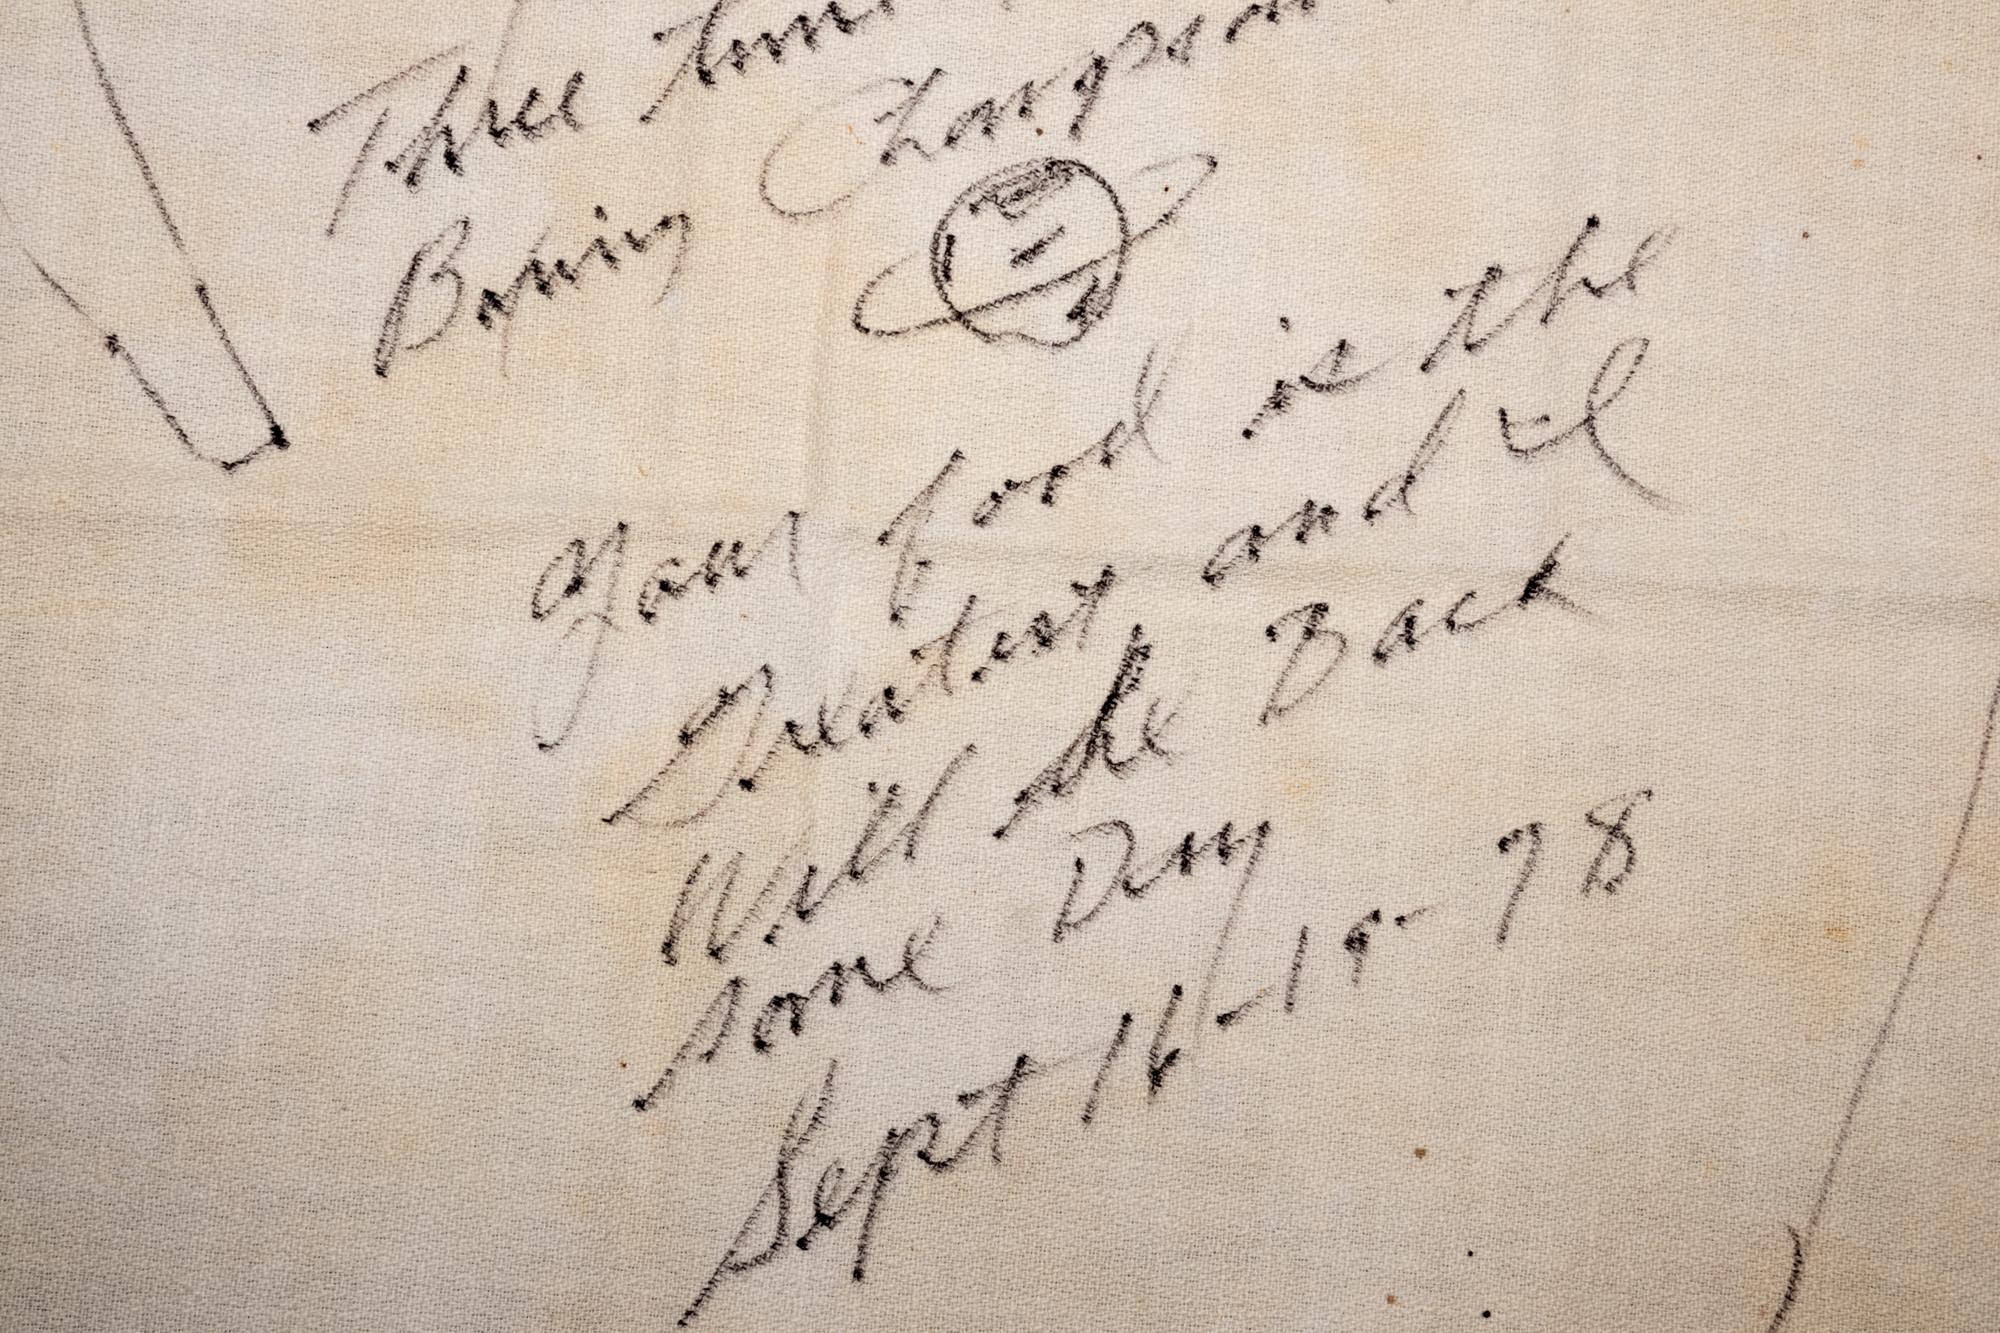 Three time
Boxing Champion
Your food is the
Greatest and I
Will be Back
some Day
Sept 16-19-78